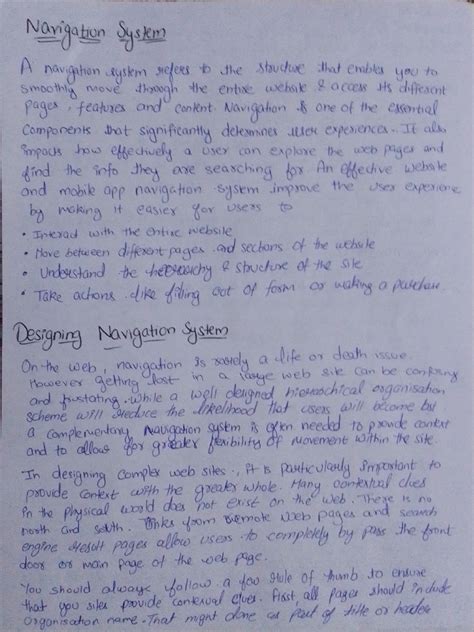 Navigation System
A navigation system refers to the structure that enables you to
smoothly move through the entire website & access its different
pages, features and content. Navigation is one of the essential
Components that significantly determines user experiences. It also
impacts how effectively a user can explore the web pages and
find the info they are searching for An effective website
and mobile app navigation system improve the user experience
by making it easier for users to
• Interact with the entire website
• Move between different pages and sections of the website
• Understand the & structure of the site
• Take actions like filling out of form or making a purchase.
Designing Navigation System
On the web, navigation is rarely a life or death issue.
However getting lost in a large web site can be confusing
and frustating. While a well designed hierarchical organisation
scheme will reduce the likelihood that users will become
a complementary navigation system is often needed to provide context
and to allow for greater flexibility of movement within the site.
In designing complex web sites, it is particularly important to
provide context with the greater whole. Many contextual clues
in the physical world does not exist on the web. There is no
north and south. links from remote web pages and search
engine result pages allow users to completely by pass the front
door or main page of the web page.
You should always follow a few of thumb to ensure
that you sites provide contexual clues. First all pages should include
Organisation name. That might done as part of title or header